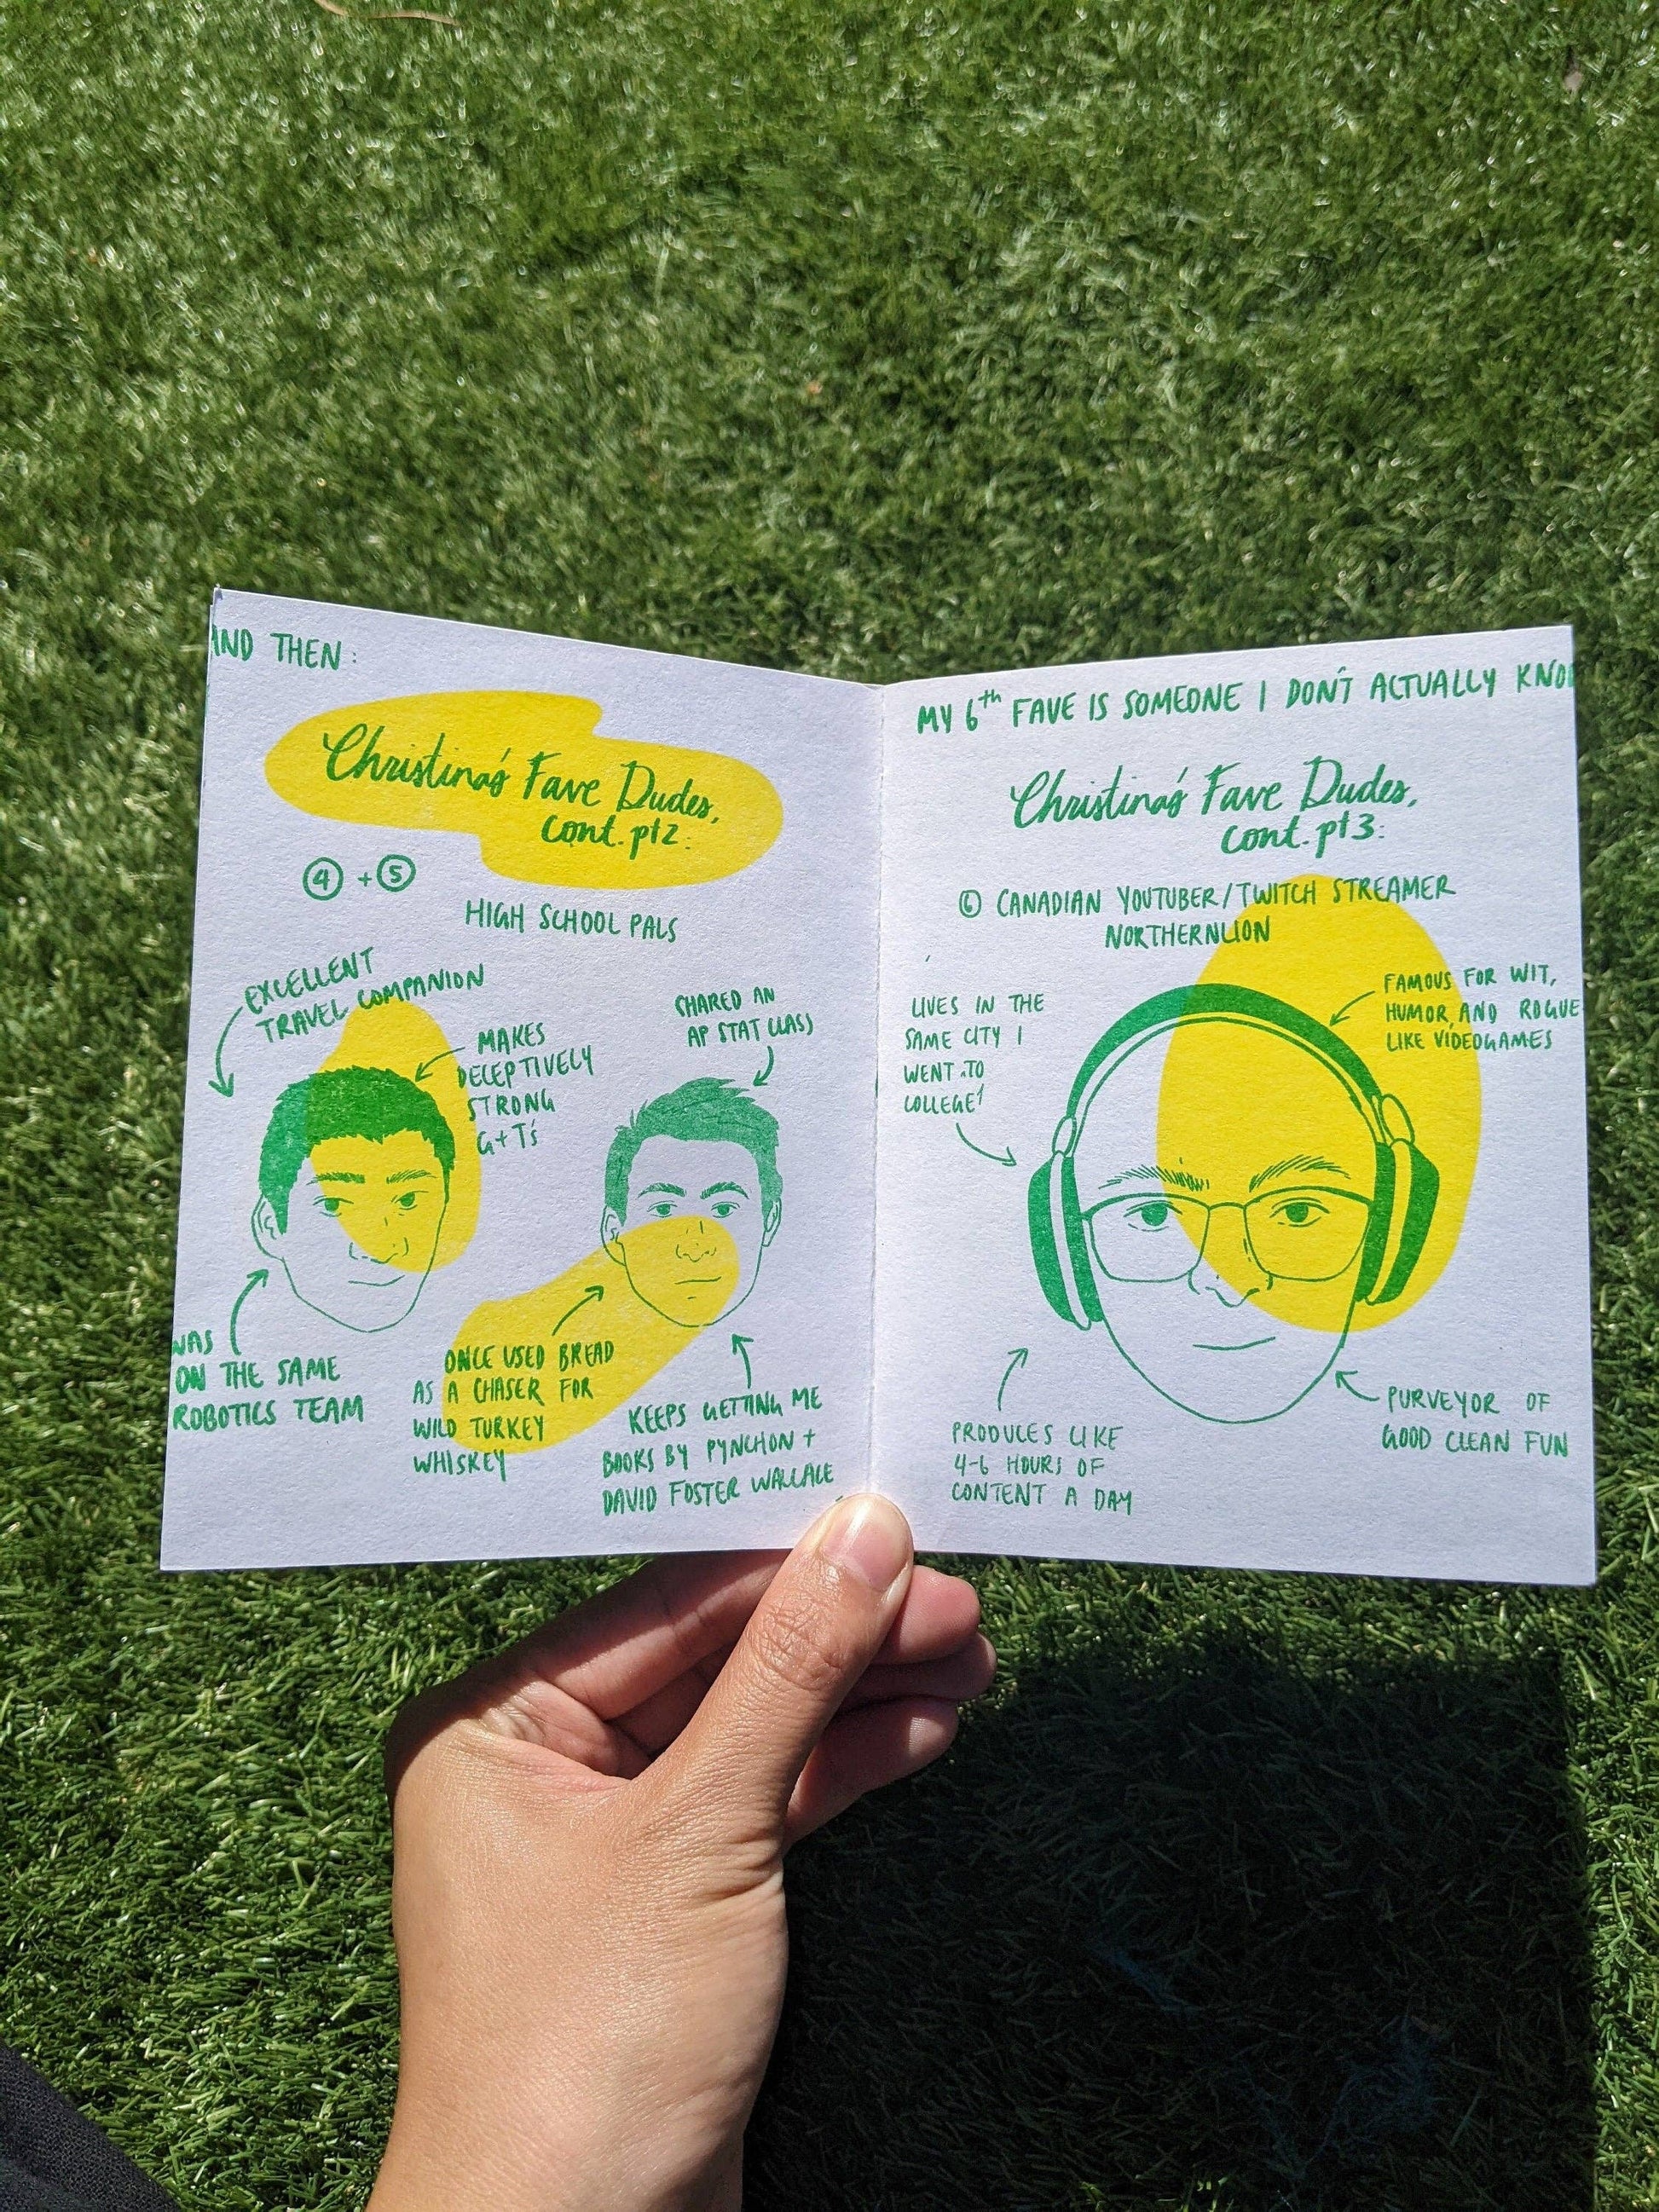 AND THEN:
Christina's Fave Dudes,
cont. pt 2:
④ + ⑤
HIGH SCHOOL PALS
EXCELLENT
TRAVEL COMPANION
MAKES
DECEPTIVELY
STRONG
G+T's
SHARED AN
AP STAT CLASS
WAS
ON THE SAME
ROBOTICS TEAM
ONCE USED BREAD
AS A CHASER FOR
WILD TURKEY
WHISKEY
KEEPS GETTING ME
BOOKS BY PYNCHON +
DAVID FOSTER WALLACE
MY 6th FAVE IS SOMEONE I DON'T ACTUALLY KNO
Christina's Fave Dudes,
cont. pt 3:
⑥ CANADIAN YOUTUBER/TWITCH STREAMER
NORTHERNLION
LIVES IN THE
SAME CITY I
WENT TO
COLLEGE!
FAMOUS FOR WIT,
HUMOR, AND ROGUE
LIKE VIDEOGAMES
PRODUCES LIKE
4-6 HOURS OF
CONTENT A DAY
PURVEYOR OF
GOOD CLEAN FUN